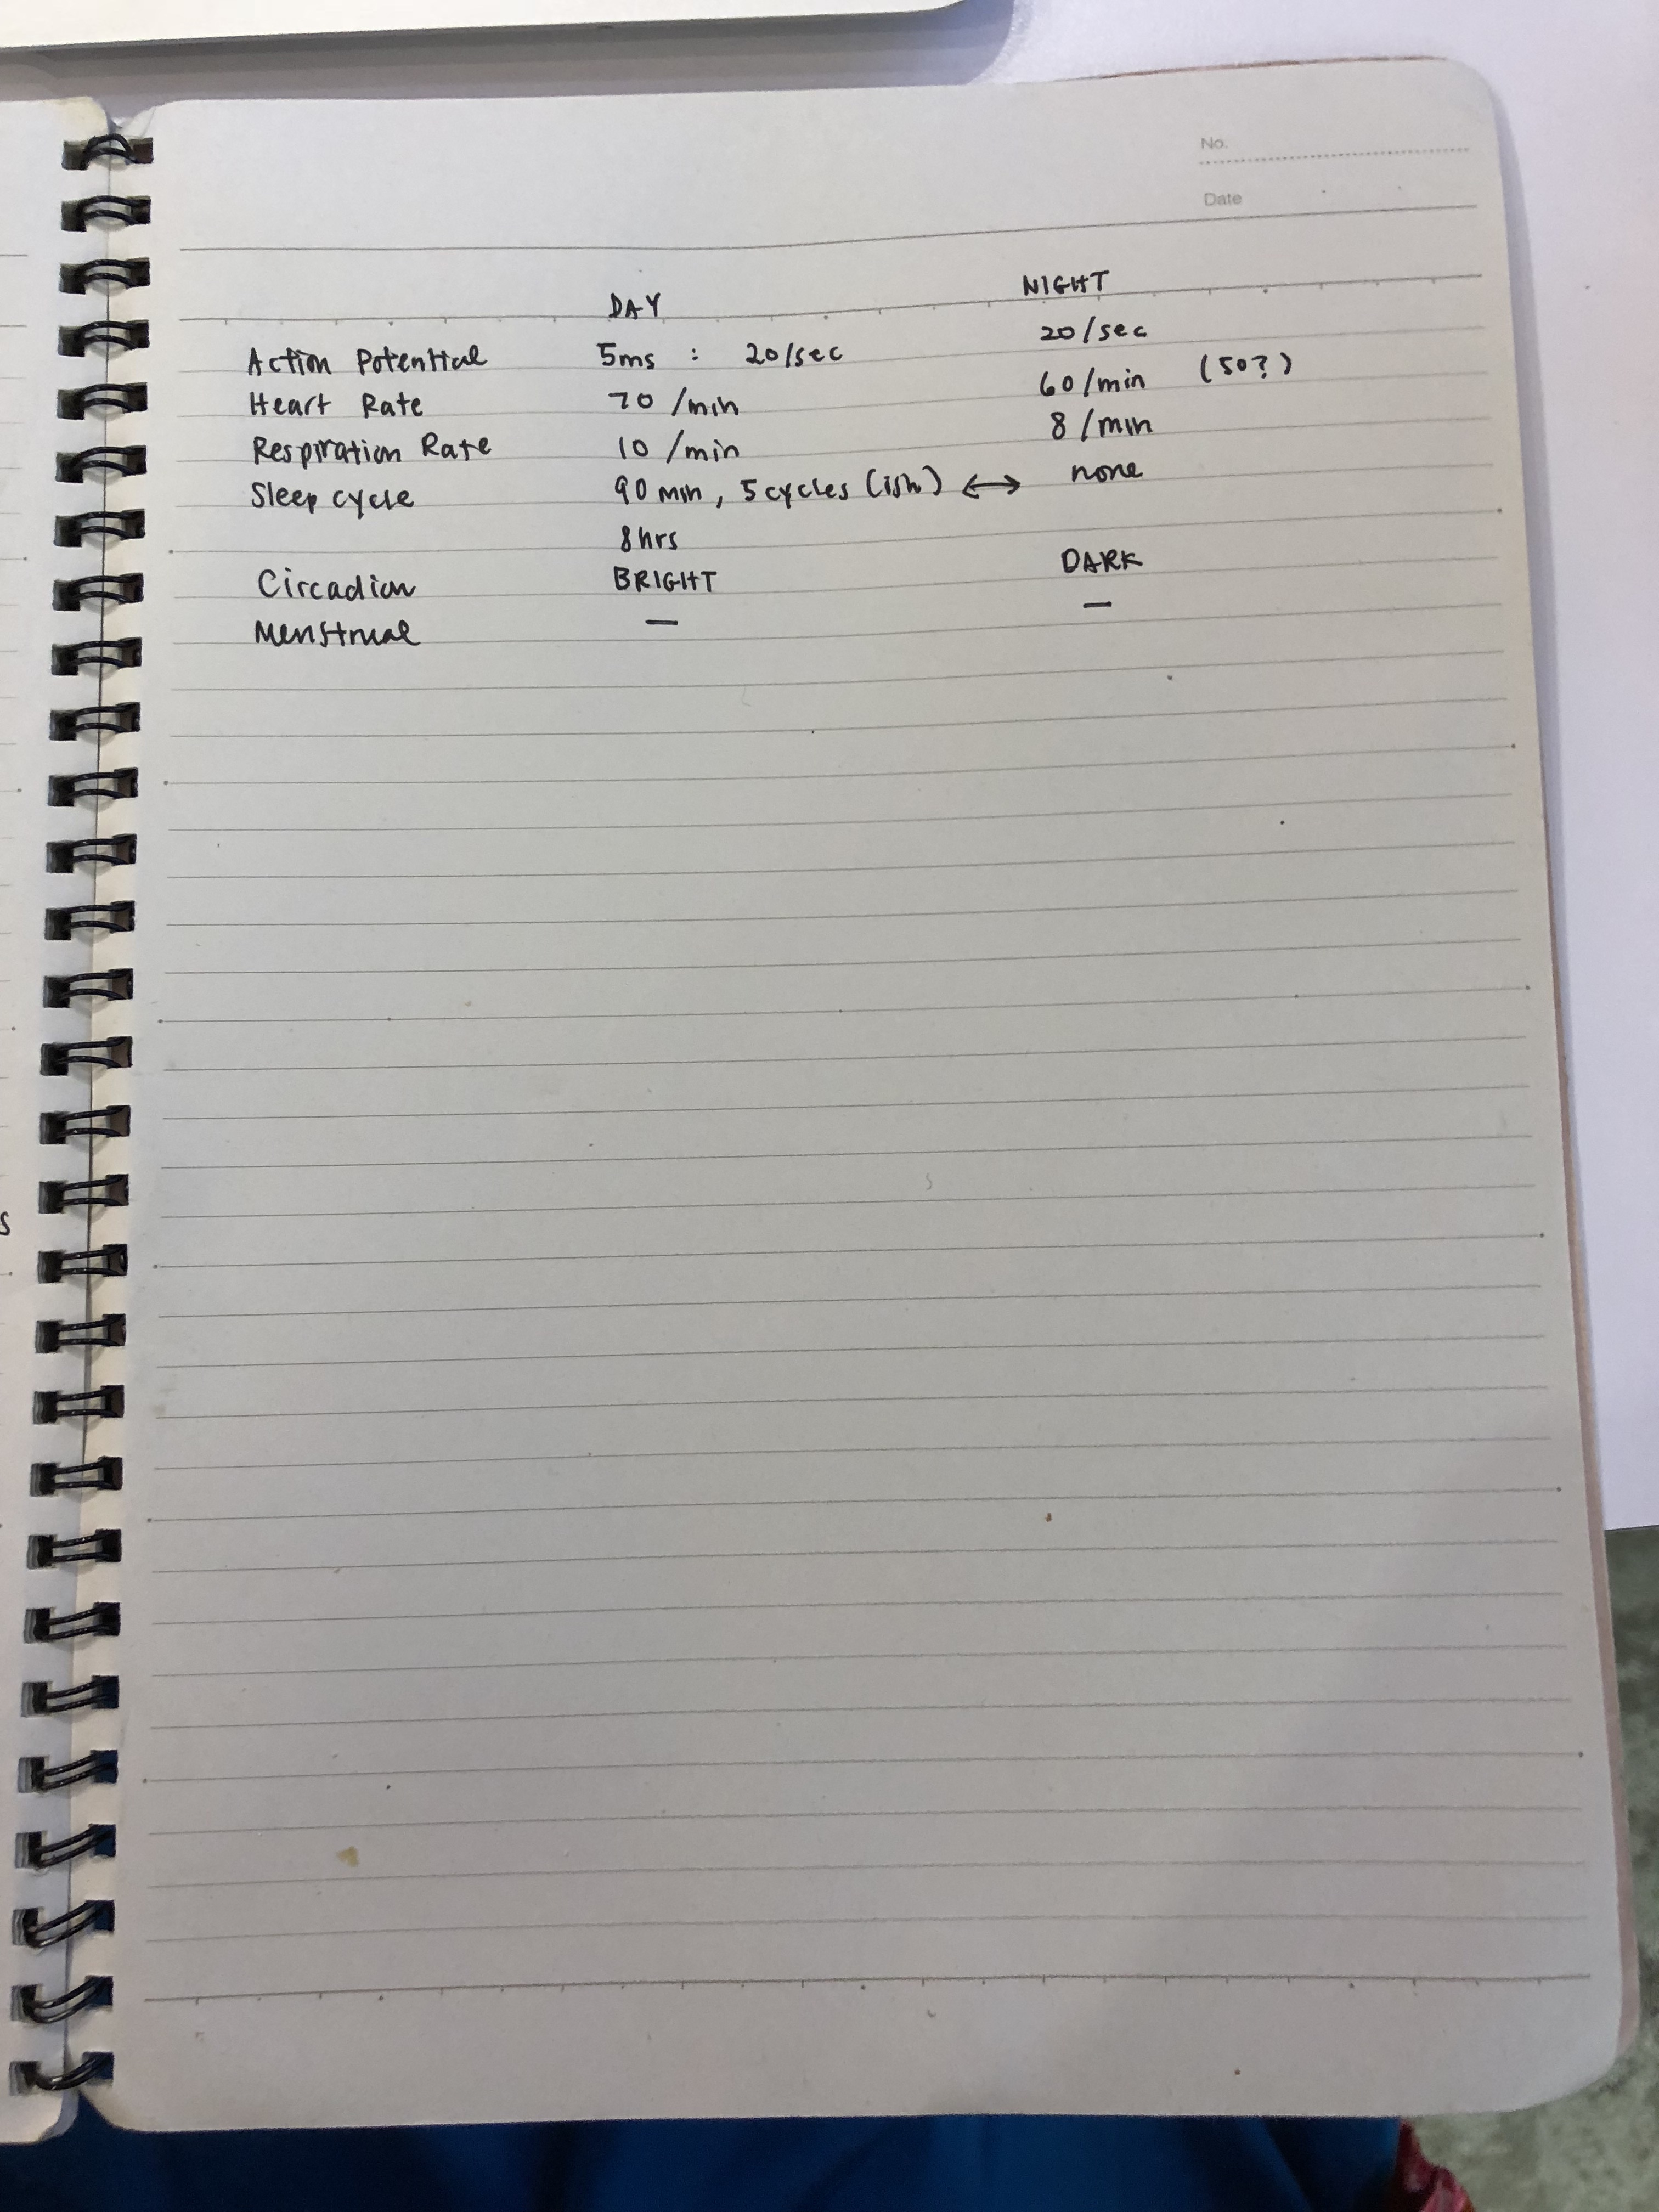 No.
Date
DAY NIGHT
Action Potential 5ms : 20/sec 20/sec
Heart Rate 70 /min 60/min (50?)
Respiration Rate 10 /min 8/min
Sleep cycle 90 min, 5 cycles (ish) ↔ none
8hrs
Circadian BRIGHT DARK
Menstrual — —
s